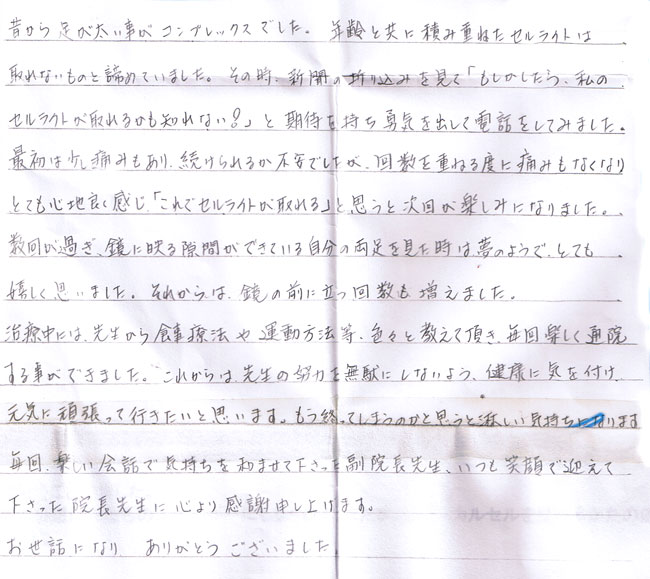 昔から足が太い事がコンプレックスでした。年齢と共に積み重ねたセルライトは
取れないものと諦めていました。その時、新聞の折り込みを見て「もしかしたら、私の
セルライトが取れるかも知れない?」と期待を持ち勇気を出して電話をしてみました。
最初は少し痛みもあり、続けられるか不安でしたが、回数を重ねる度に痛みもなくなり
とても心地良く感じ「これでセルライトが取れる」と思うと次回が楽しみになりました。
数回が過ぎ、鏡に映る隙間ができている自分の両足を見た時は夢のようで、とても
嬉しく思いました。それからは、鏡の前に立つ回数も増えました。
治療中には、先生から食事療法や運動方法等、色々と教えて頂き、毎回楽しく通院
する事ができました。これからは先生の努力を無駄にしないよう、健康に気を付け、
元気に頑張って行きたいと思います。もう終ってしまうのかと思うと淋しい気持ちになります
毎回、楽しい会話で気持ちを和ませて下さった副院長先生、いつも笑顔で迎えて
下さった院長先生に心より感謝申し上げます。
お世話になり ありがとうございました